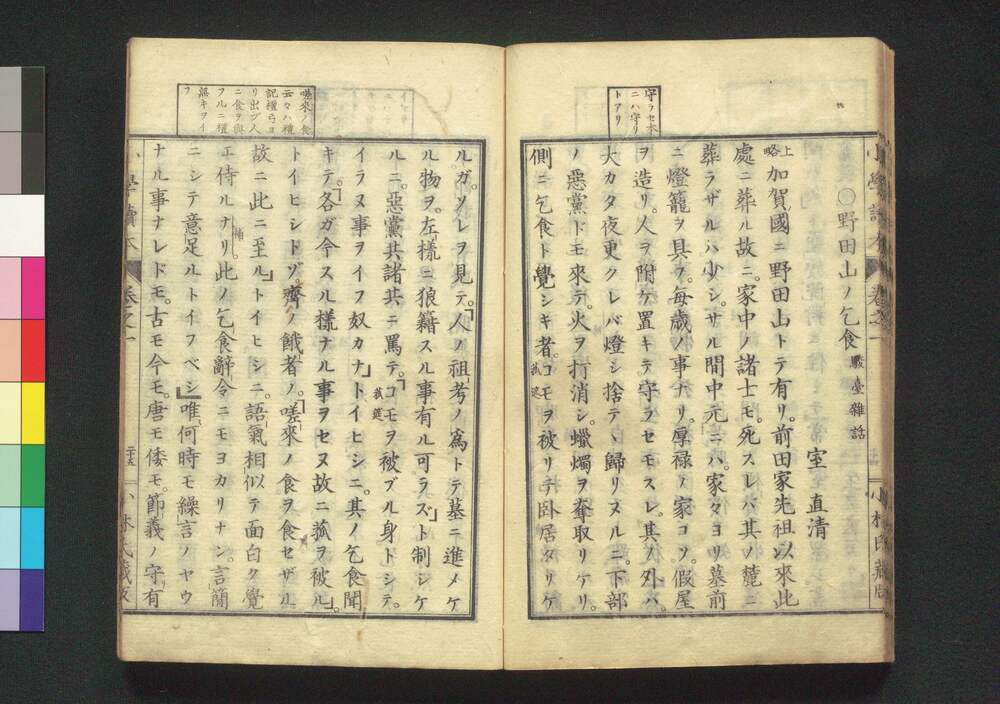 ○野田山ノ乞食 駿臺雜話
室直清
上略 加賀ノ國ニ野田山トテ有リ。前田家先祖以來此
處ニ葬ル故ニ。家中ノ諸士モ。死スレバ其ノ麓ニ
葬ラザルハ少シ。サル間中元ニハ。家々ヨリ墓前
ニ燈籠ヲ具フ。毎歳ノ事ナリ。厚禄ノ家コソ。假屋
ヲ造リ。人ヲ附ケ置キテ守ラセモスレ。其ノ外ハ。
大カタ夜更クレバ燈シ捨テヽ歸リヌルニ。下部
ノ惡黨ドモ來テ。火ヲ打消シ。蠟燭ヲ奪取リケリ。
側ニ乞食ト覺シキ者。コモヲ被リテ臥居タリケ
守ラセ本
ニハ守リ
トアリ
小學讀本 卷之一
小林氏藏版
ルガ。ソレヲ見テ。「人ノ祖考ノ爲トテ墓ニ進メケ
ル物ヲ。左樣ニ狼籍スル事有ル可ラズ」ト制シケ
ルニ。惡黨共諸其ニ罵テ。「コモヲ被ブル身トシテ。
イラヌ事ヲイフ奴カナ」トイヒシニ。其ノ乞食聞
キテ。「各ガ今スル樣ナル事ヲセヌ故ニ菰ヲ被ル」。
トイヒシトゾ。齊ノ餓者ノ。「嗟來ノ食ヲ食セザル
故ニ此ニ至ル」トイヒシニ。語氣相似テ面白ク覺
エ侍ルナリ。此ノ乞食辭令ニモヨカリナン。言簡
ニシテ意足ルトイフベシ』唯何時モ繰言ノヤウ
ナル事ナレドモ。古モ今モ。唐モ倭モ。節義ノ守有
嗟來ノ食
云々ハ禮
記檀弓ヨ
リ出ヅ人
ニ食ヲ與
フルニ禮
無キヲイ
フ
小學讀本 卷之一 二十五
小林氏藏版